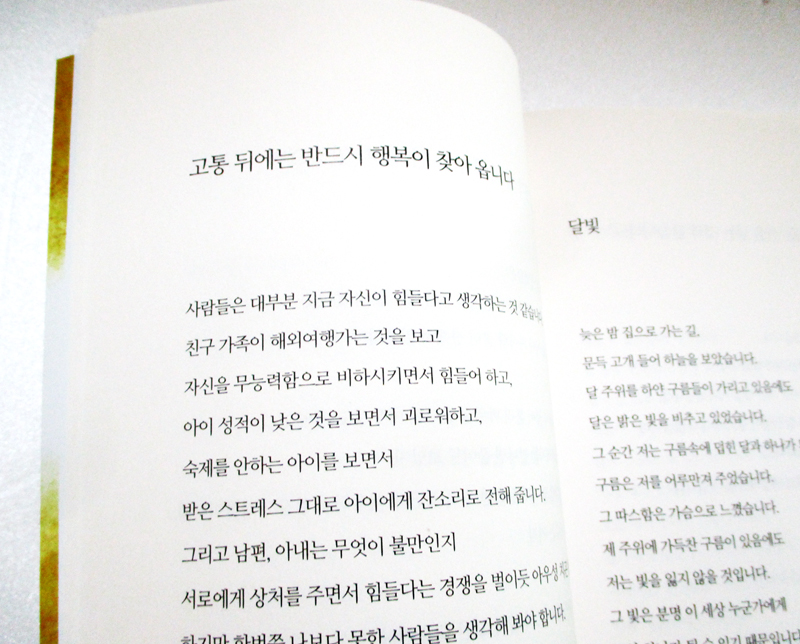 고통 뒤에는 반드시 행복이 찾아 옵니다
사람들은 대부분 지금 자신이 힘들다고 생각하는 것 같습니다.
친구 가족이 해외여행가는 것을 보고
자신을 무능력함으로 비하시키면서 힘들어 하고,
아이 성적이 낮은 것을 보면서 괴로워하고,
숙제를 안하는 아이를 보면서
받은 스트레스 그대로 아이에게 잔소리로 전해 줍니다.
그리고 남편, 아내는 무엇이 불만인지
서로에게 상처를 주면서 힘들다는 경쟁을 벌이듯 아우성
하지만 한번쯤 나보다 못한 사람들을 생각해 봐야 합니다.
달빛
늦은 밤 집으로 가는 길,
문득 고개 들어 하늘을 보았습니다.
달 주위를 하얀 구름들이 가리고 있음에도
달은 밝은 빛을 비추고 있었습니다.
그 순간 저는 구름속에 덮힌 달과 하나가
구름은 저를 어루만져 주었습니다.
그 따스함은 가슴으로 느꼈습니다.
제 주위에 가득찬 구름이 있음에도
저는 빛을 잃지 않을 것입니다.
그 빛은 분명 이 세상 누군가에게
있기 때문입니다